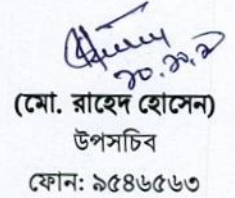 ২০.১১.১
(মো. রাহেদ হোসেন)
উপসচিব
ফোন: ৯৫৪৬৫৬৩